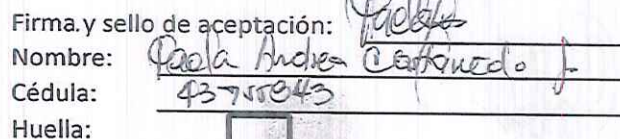 Firma.y sello de aceptación:
Nombre: Paola Andrea Castañeda J.
Cédula: 43755843
Huella: